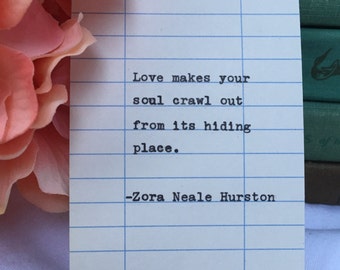 Love makes your
soul crawl out
from its hiding
place.
-Zora Neale Hurston